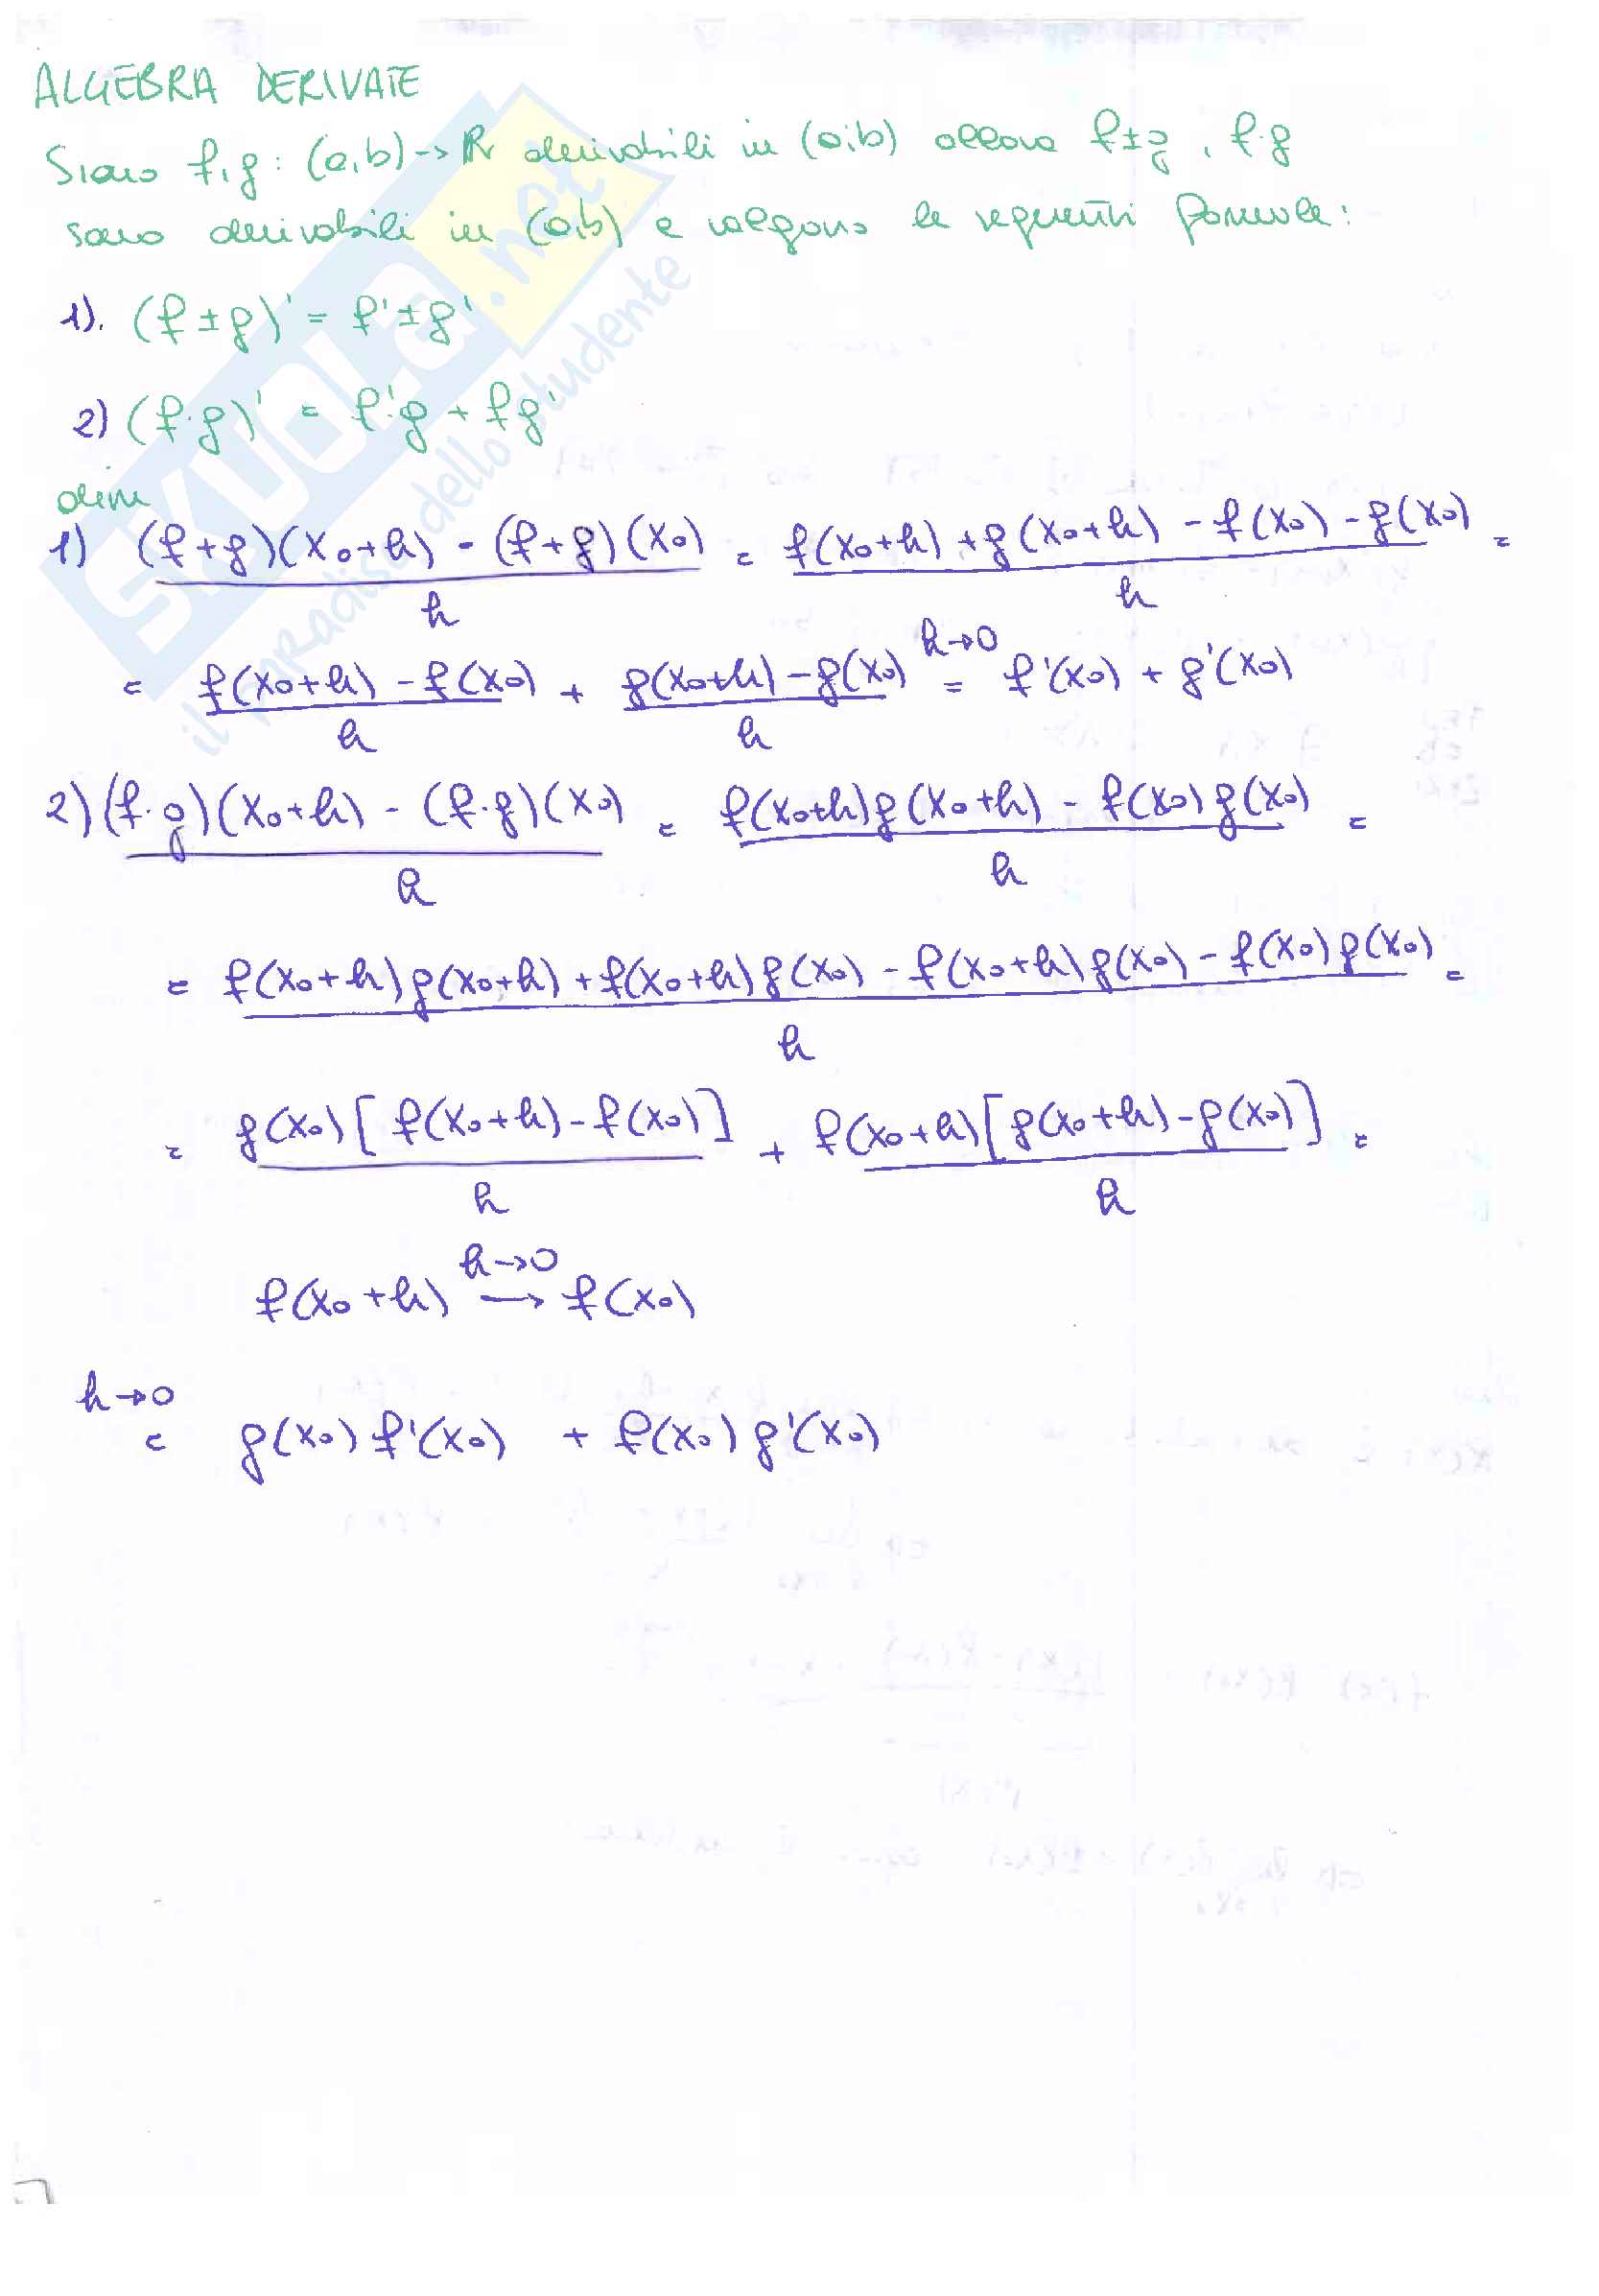 ALGEBRA DERIVATE
Siano f,g: (a,b) → R derivabili in (a,b) allora f±g, f·g
sono derivabili in (a,b) e valgono le seguenti formule:
1). (f ± g)' = f' ± g'
2) (f·g)' = f'g + fg'
dim
1) ((f+g)(x₀+h) - (f+g)(x₀))/h = (f(x₀+h) + g(x₀+h) - f(x₀) - g(x₀))/h =
= (f(x₀+h) - f(x₀))/h + (g(x₀+h) - g(x₀))/h =^{h→0} f'(x₀) + g'(x₀)
2) ((f·g)(x₀+h) - (f·g)(x₀))/h = (f(x₀+h)g(x₀+h) - f(x₀)g(x₀))/h =
= (f(x₀+h)g(x₀+h) + f(x₀+h)g(x₀) - f(x₀+h)g(x₀) - f(x₀)g(x₀))/h =
= g(x₀)[f(x₀+h) - f(x₀)]/h + f(x₀+h)[g(x₀+h) - g(x₀)]/h =
f(x₀+h) →^{h→0} f(x₀)
=^{h→0} g(x₀)f'(x₀) + f(x₀)g'(x₀)
SKUOLA.net
il paradiso dello studente